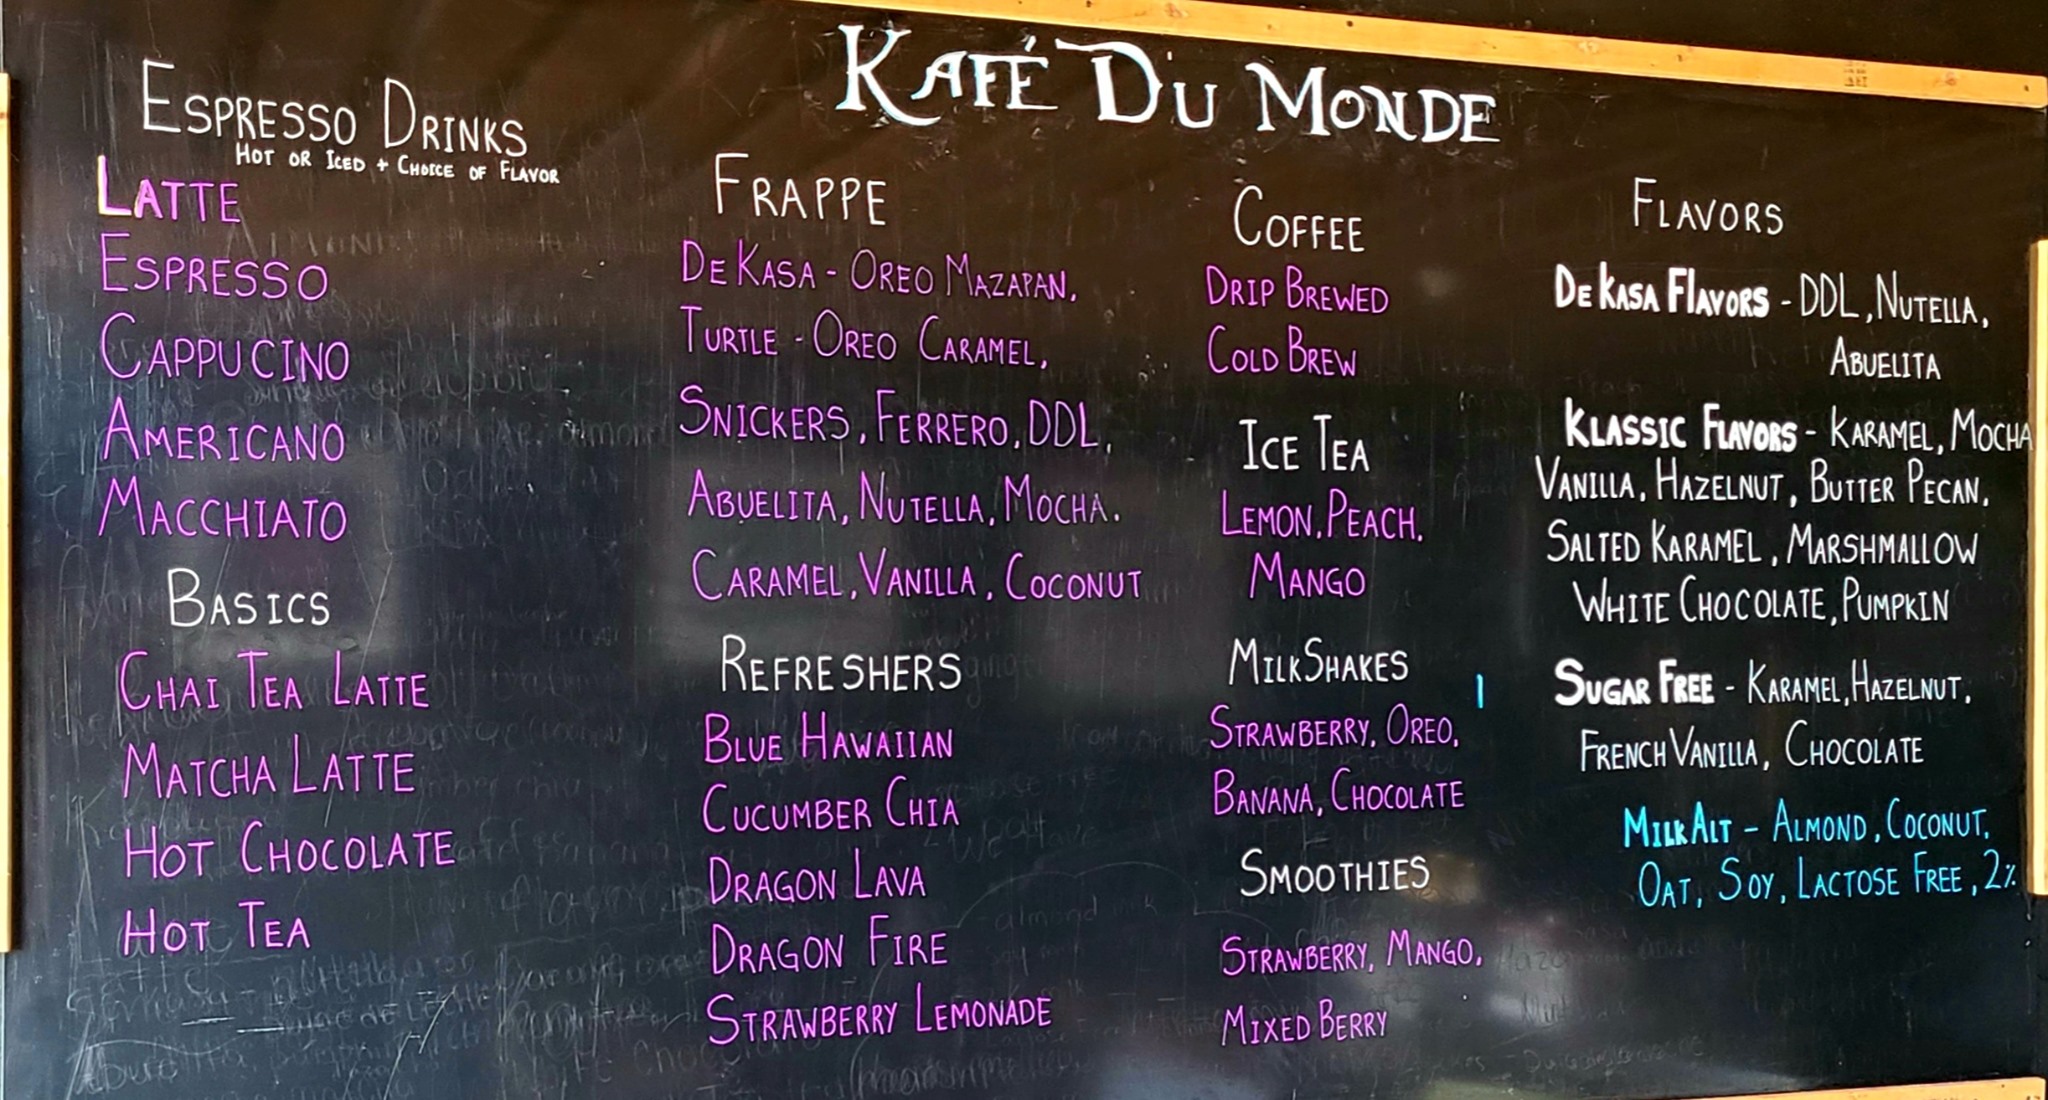 KAFÉ D'U MONDE
ESPRESSO DRINKS
HOT OR ICED + CHOICE OF FLAVOR
LATTE
ESPRESSO
CAPPUCINO
AMERICANO
MACCHIATO
BASICS
CHAI TEA LATTE
MATCHA LATTE
HOT CHOCOLATE
HOT TEA
FRAPPE
DE KASA - OREO MAZAPAN,
TURTLE - OREO CARAMEL,
SNICKERS, FERRERO, DDL,
ABUELITA, NUTELLA, MOCHA.
CARAMEL, VANILLA, COCONUT
REFRESHERS
BLUE HAWAIIAN
CUCUMBER CHIA
DRAGON LAVA
DRAGON FIRE
STRAWBERRY LEMONADE
COFFEE
DRIP BREWED
COLD BREW
ICE TEA
LEMON, PEACH,
MANGO
MILKSHAKES
STRAWBERRY, OREO,
BANANA, CHOCOLATE
SMOOTHIES
STRAWBERRY, MANGO,
MIXED BERRY
FLAVORS
DE KASA FLAVORS - DDL, NUTELLA,
ABUELITA
KLASSIC FLAVORS - KARAMEL, MOCHA
VANILLA, HAZELNUT, BUTTER PECAN,
SALTED KARAMEL, MARSHMALLOW
WHITE CHOCOLATE, PUMPKIN
SUGAR FREE - KARAMEL, HAZELNUT,
FRENCH VANILLA, CHOCOLATE
MILK ALT - ALMOND, COCONUT,
OAT, SOY, LACTOSE FREE, 2%